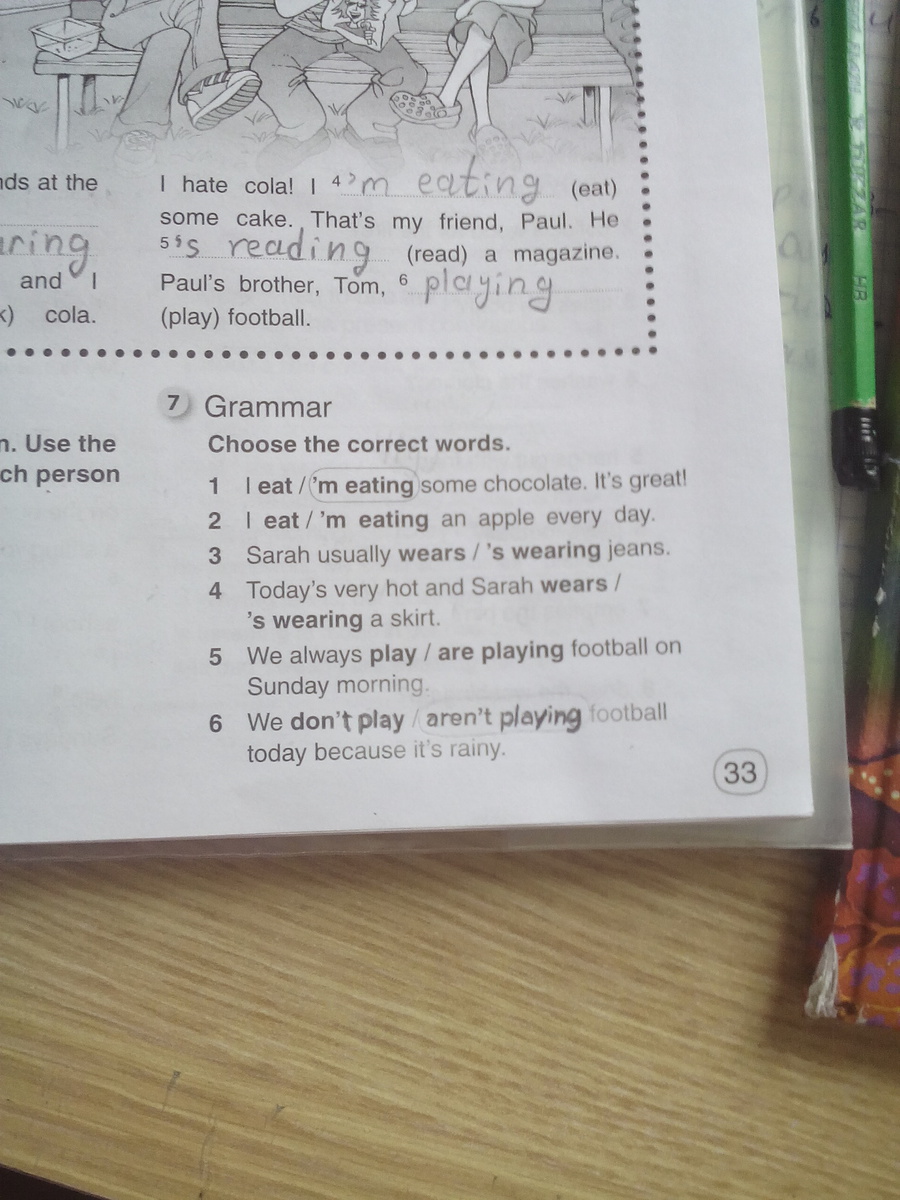 nds at the
ring
and I
k) cola.
I hate cola! I 4 'm eating (eat)
some cake. That's my friend, Paul. He
5 's reading (read) a magazine.
Paul's brother, Tom, 6 playing
(play) football.
n. Use the
ch person
7 Grammar
Choose the correct words.
1 I eat / 'm eating some chocolate. It's great!
2 I eat / 'm eating an apple every day.
3 Sarah usually wears / 's wearing jeans.
4 Today's very hot and Sarah wears /
's wearing a skirt.
5 We always play / are playing football on
Sunday morning.
6 We don't play / aren't playing football
today because it's rainy.
33
HB